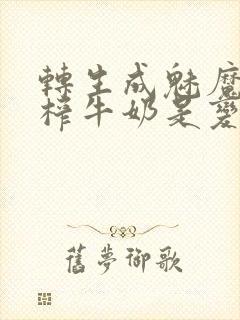 轉生成魅魔
榨牛奶是變
舊夢御歌